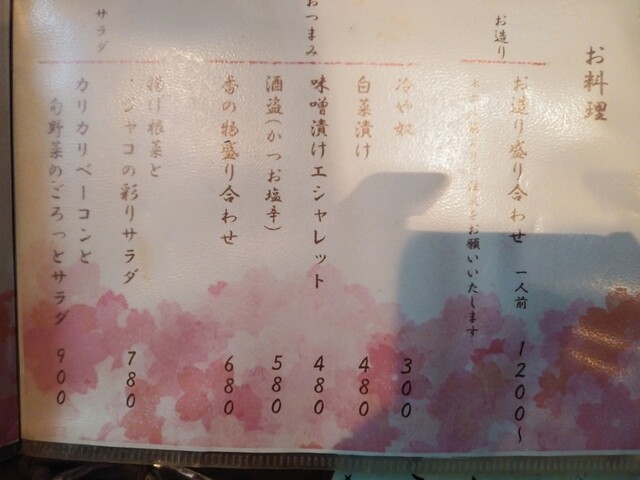 お料理
お造り
お造り盛り合わせ 一人前 1200〜
をお願いいたします
おつまみ
冷や奴 300
白菜漬け 480
味噌漬けエシャレット 480
酒盗(かつお塩辛) 580
香の物盛り合わせ 680
サラダ
揚げ根菜と
ジャコの彩りサラダ 780
カリカリベーコンと
旬野菜のごろっとサラダ 900